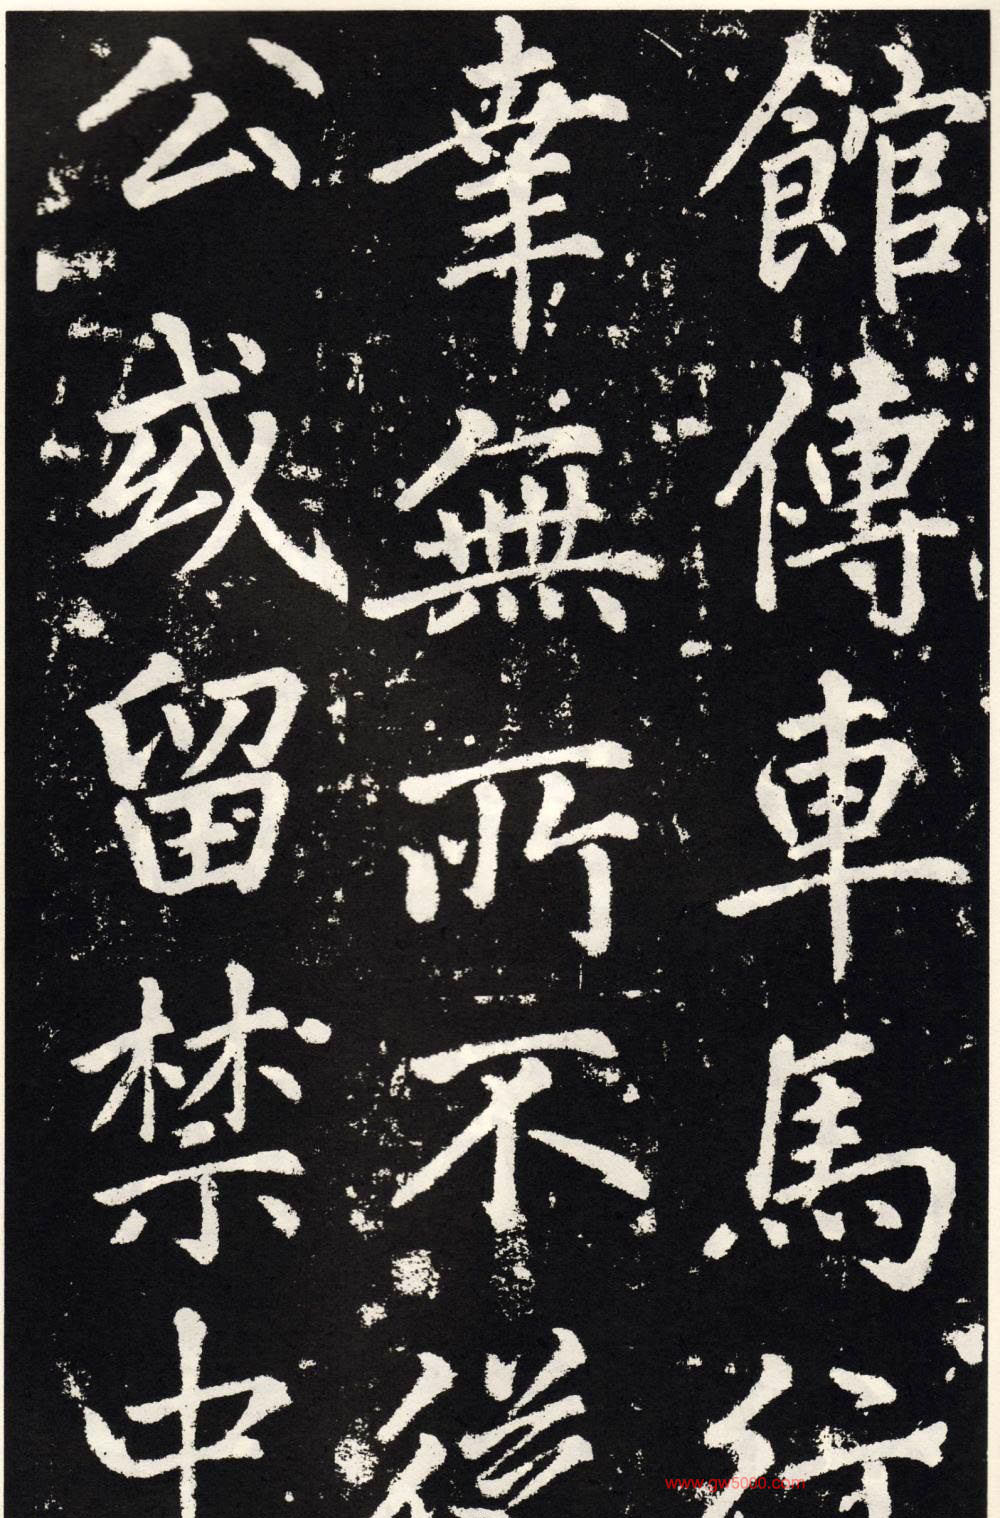 館傳車馬行
幸無所不從
公或留禁中
www.gw5000.com